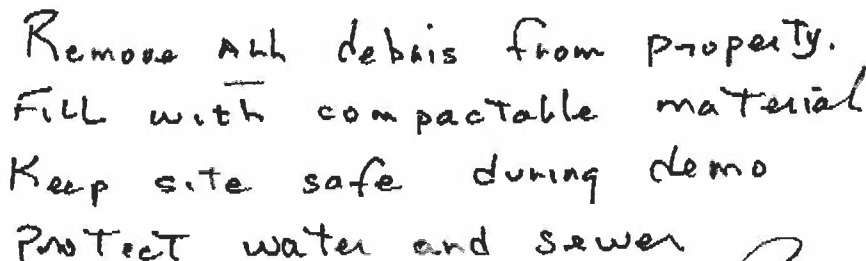 Remove ALL debris from property.
Fill with compactable material
Keep site safe during demo
Protect water and sewer